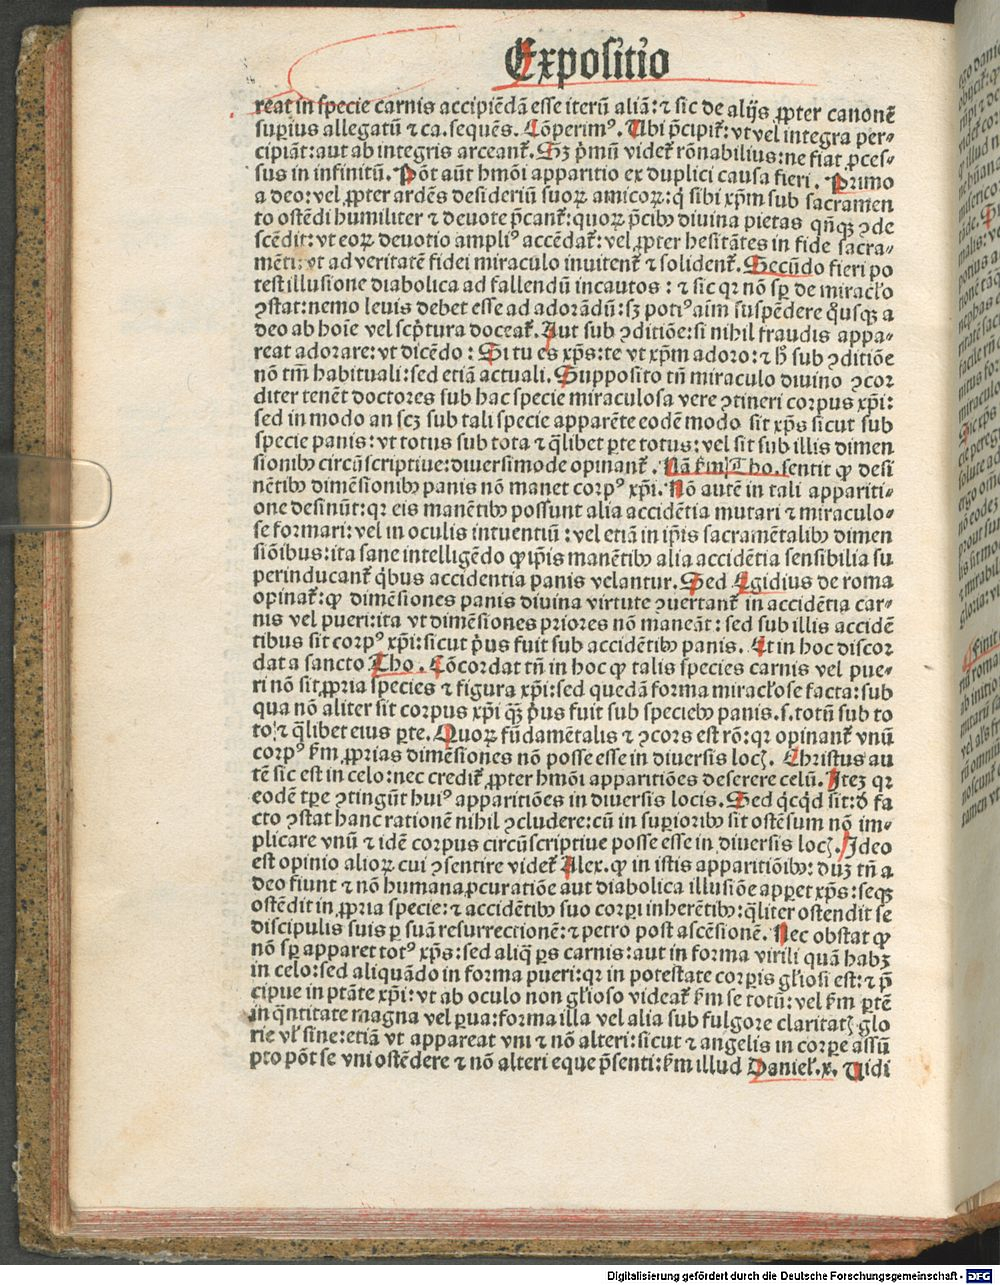 Expositio
reat in specie carnis accipiēdā esse iterū aliā: ⁊ sic de alijs ꝓpter canonē
supius allegatū ⁊ ca. sequēs. Cōperimꝰ. Ubi p̄cipit᷑: vt vel integra per-
cipiāt: aut ab integris arceant᷑. Sꝫ p̓mū videt᷑ rōnabilius: ne fiat ꝓces-
sus in infinitū. Pōt aūt hmōi apparitio ex duplici causa fieri. Primo
a deo: vel ꝓpter ardēs desideriū suoꝝ amicoꝝ: q̓ sibi xp̄m sub sacramen
to ostēdi humiliter ⁊ deuote p̄cant᷑: quoꝝ p̄cibꝰ diuina pietas qn̄qꝫ ꝯde
scēdit: vt eoꝝ deuotio ampliꝰ accēdat᷑: vel ꝓpter hesitātes in fide sacra-
mēti: vt ad veritatē fidei miraculo inuitent᷑ ⁊ solident᷑. Secūdo fieri po
test illusione diabolica ad fallendū incautos: ⁊ sic qr nō sꝑ de miracl̓o
ꝯstat: nemo leuis debet esse ad adorādū: sꝫ potiꝰ aīm suspēdere q̓usqꝫ a
deo ab hoīe vel scp̓tura doceat᷑. Aut sub ꝯditiōe: si nihil fraudis appa-
reat adorare: vt dicēdo: Si tu es xp̄s: te vt xp̄m adoro: ⁊ h̓ sub ꝯditiōe
nō tm̄ habituali: sed etiā actuali. Supposito tn̄ miraculo diuino ꝯcor
diter tenēt doctores sub hac specie miraculosa vere ꝯtineri corpus xp̄i:
sed in modo an scꝫ sub tali specie apparēte eodē modo sit xp̄s sicut sub
specie panis: vt totus sub tota ⁊ q̄libet ꝑte totus: vel sit sub illis dimen
sionibꝰ circūscriptiue: diuersimode opinant᷑. Nā ẜm Tho. sentit ꝙ desi
nētibꝰ dimēsionibꝰ panis nō manet corpꝰ xp̄i. Nō autē in tali appariti-
one desinūt: qr eis manētibꝰ possunt alia accidētia mutari ⁊ miraculo-
se formari: vel in oculis intuentiū: vel etiā in ip̄is sacramētalibꝰ dimen
siōibus: ita sane intelligēdo ꝙ ip̄is manētibꝰ alia accidētia sensibilia su
perinducant᷑ q̓bus accidentia panis velantur. Sed Egidius de roma
opinat᷑: ꝙ dimēsiones panis diuina virtute ꝯuertant᷑ in accidētia car-
nis vel pueri: ita vt dimēsiones priores nō maneāt: sed sub illis accidē
tibus sit corpꝰ xp̄i: sicut p̓us fuit sub accidētibꝰ panis. Et in hoc discor
dat a sancto Tho. Cōcordat tn̄ in hoc ꝙ talis species carnis vel pue-
ri nō sit ꝓpria species ⁊ figura xp̄i: sed quedā forma miracl̓ose facta: sub
qua nō aliter sit corpus xp̄i qꝫ̄ p̓us fuit sub speciebꝰ panis. s. totū sub to
to: ⁊ q̄libet eius ꝑte. Quoꝝ fūdamētalis ⁊ ꝯcors est rō: qr opinant᷑ vnū
corpꝰ ẜm ꝓprias dimēsiones nō posse esse in diuersis locꝭ. Christus au
tē sic est in celo: nec credit᷑ ꝓpter hmōi apparitiōes deserere celū. Itez qr
eodē tꝑe ꝯtingūt huiꝰ apparitiōes in diuersis locis. Sed q̓cq̓d sit: d̓ fa
cto ꝯstat hanc rationē nihil ꝯcludere: cū in supioribꝰ sit ostēsum nō im-
plicare vnū ⁊ idē corpus circūscriptiue posse esse in diuersis locꝭ. Ideo
est opinio alioꝝ cui ꝯsentire videt᷑ Alex. ꝙ in istis apparitiōibꝰ: dūz tn̄ a
deo fiunt ⁊ nō humana ꝓcuratiōe aut diabolica illusiōe apꝑet xp̄s: seqꝫ
ostēdit in ꝓpria specie: ⁊ accidētibꝰ suo corpi inherētibꝰ: q̄liter ostendit se
discipulis suis ꝑ suā resurrectionē: ⁊ petro post ascēsionē. Nec obstat ꝙ
nō sꝑ apparet totꝰ xp̄s: sed aliq̄ ꝑs carnis: aut in forma virili quā habꝫ
in celo: sed aliquādo in forma pueri: qr in potestate corpis gl̓iosi est: ⁊ p̄
cipue in ptāte xp̄i: vt ab oculo non gl̓ioso videat᷑ ẜm se totū: vel ẜm ꝑtē
in q̄ntitate magna vel ꝑua: forma illa vel alia sub fulgore claritatꝭ glo
rie vl̓ sine: etiā vt appareat vni ⁊ nō alteri: sicut ⁊ angelis in corpe assū
pto pōt se vni ostēdere ⁊ nō alteri eque p̄senti: ẜm illud Daniel̓. x. Uidi
Digitalisierung gefördert durch die Deutsche Forschungsgemeinschaft - DFG